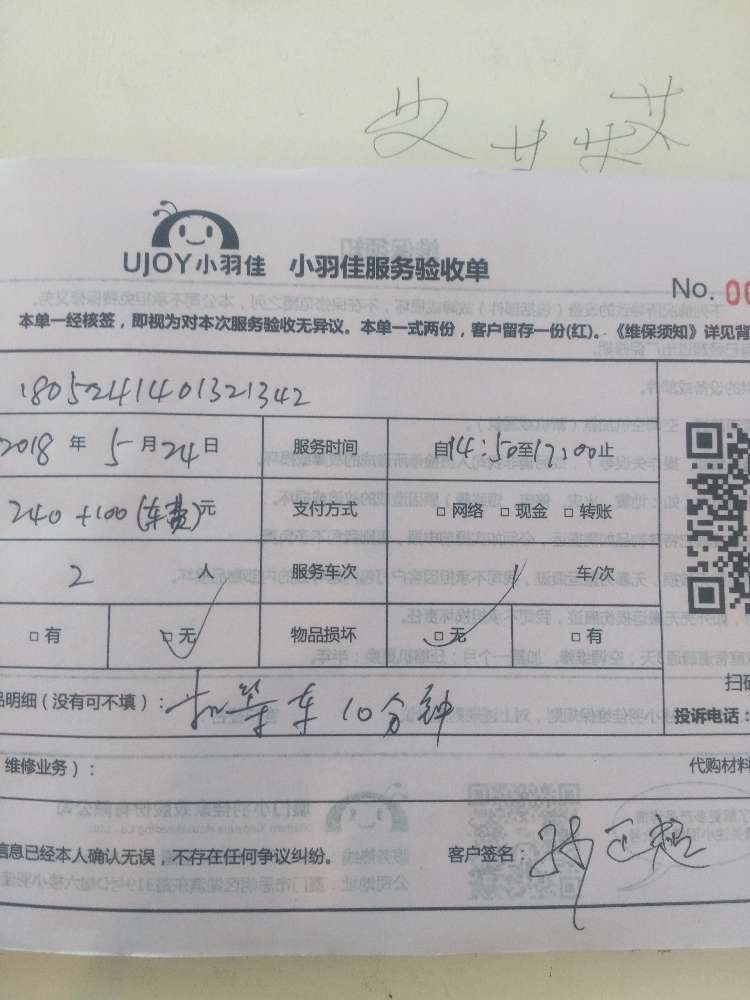 艾
UJOY小羽佳 小羽佳服务验收单
No. 00
本单一经核签，即视为对本次服务验收无异议。本单一式两份，客户留存一份(红)。《维保须知》详见背
1805241401321342
2018 年 5 月 24 日 服务时间 自14:50至17:00止
240+100(车费)元 支付方式 □网络 □现金 □转账
2 人 服务车次 1 车/次
□有 □无 物品损坏 □无 □有
品明细（没有可不填）： 扣等车10分钟
扫码
投诉电话：
维修业务）： 代购材料
信息已经本人确认无误，不存在任何争议纠纷。 客户签名：